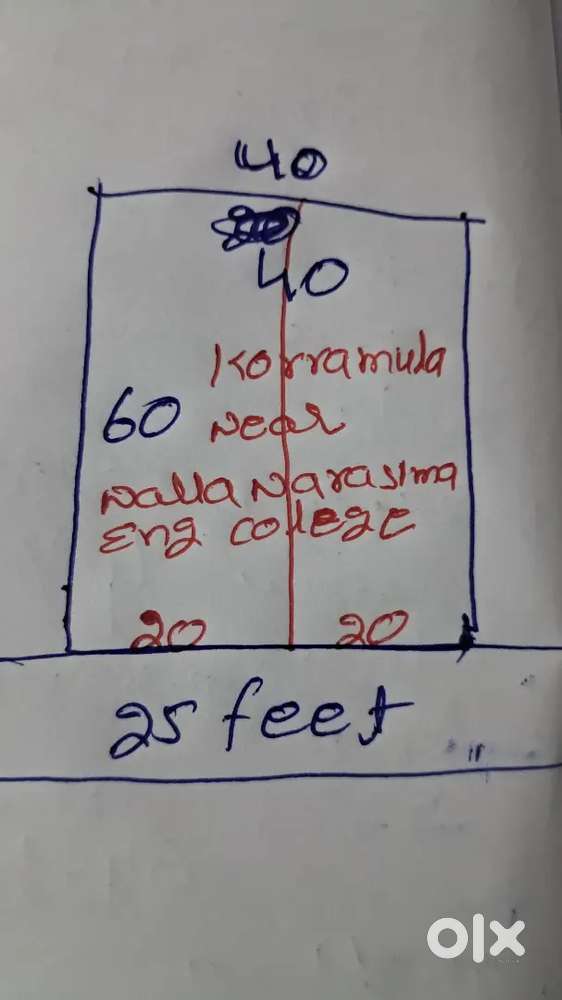 40
40
Korramula
60 Near
Nalla Narasima
Eng college
20 20
25 feet
olx